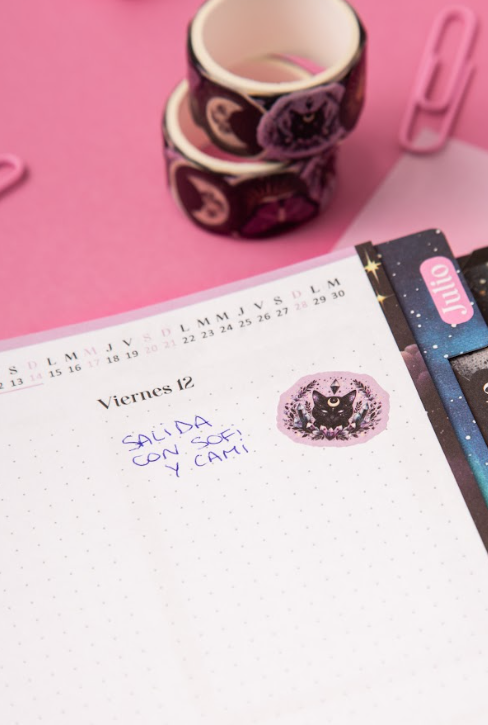 Julio
S D L M M J V S D L M M J V S D L M
13 14 15 16 17 18 19 20 21 22 23 24 25 26 27 28 29 30
Viernes 12
SALIDA
CON SOFI
Y CAMI